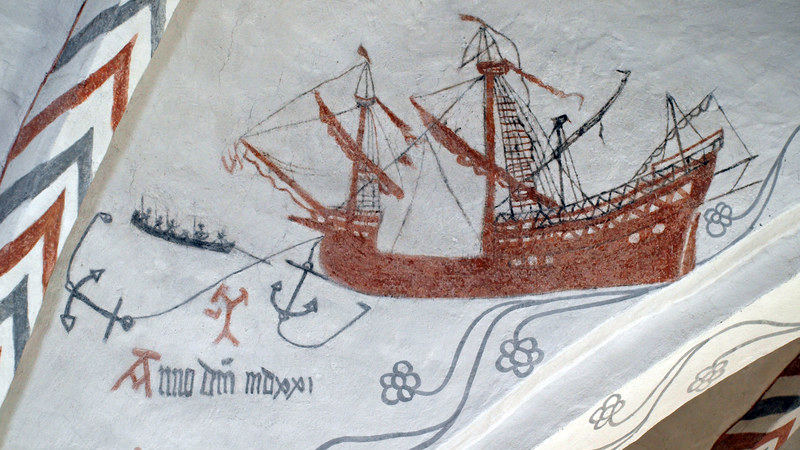 Anno dm̄ mdxxi